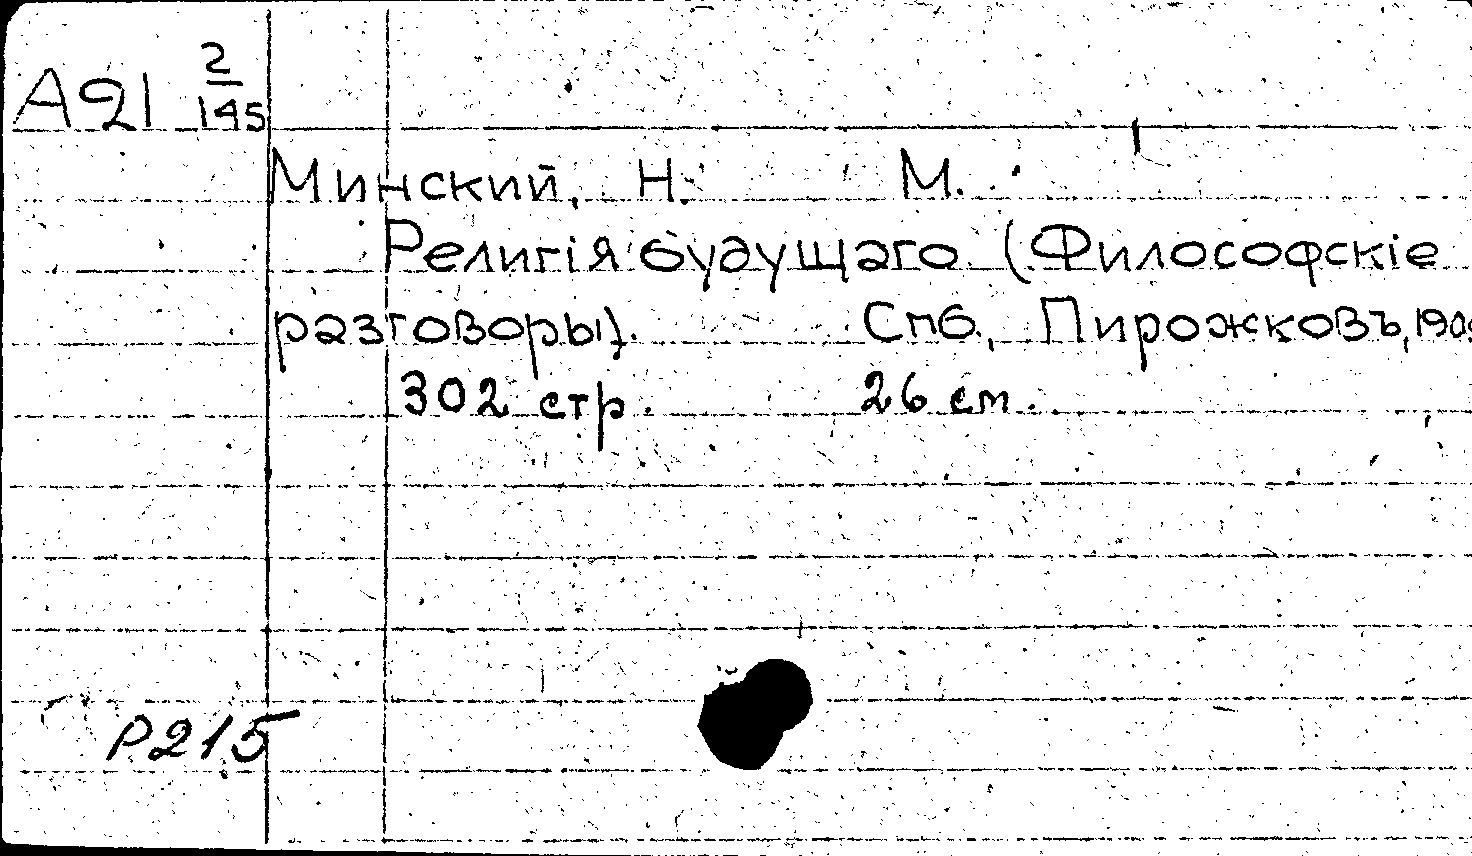 А21 2/145
Минский, Н. М.
Религія будущаго (Философскіе
разговоры). Спб., Пирожковъ,
302 стр. 26 см.
P215